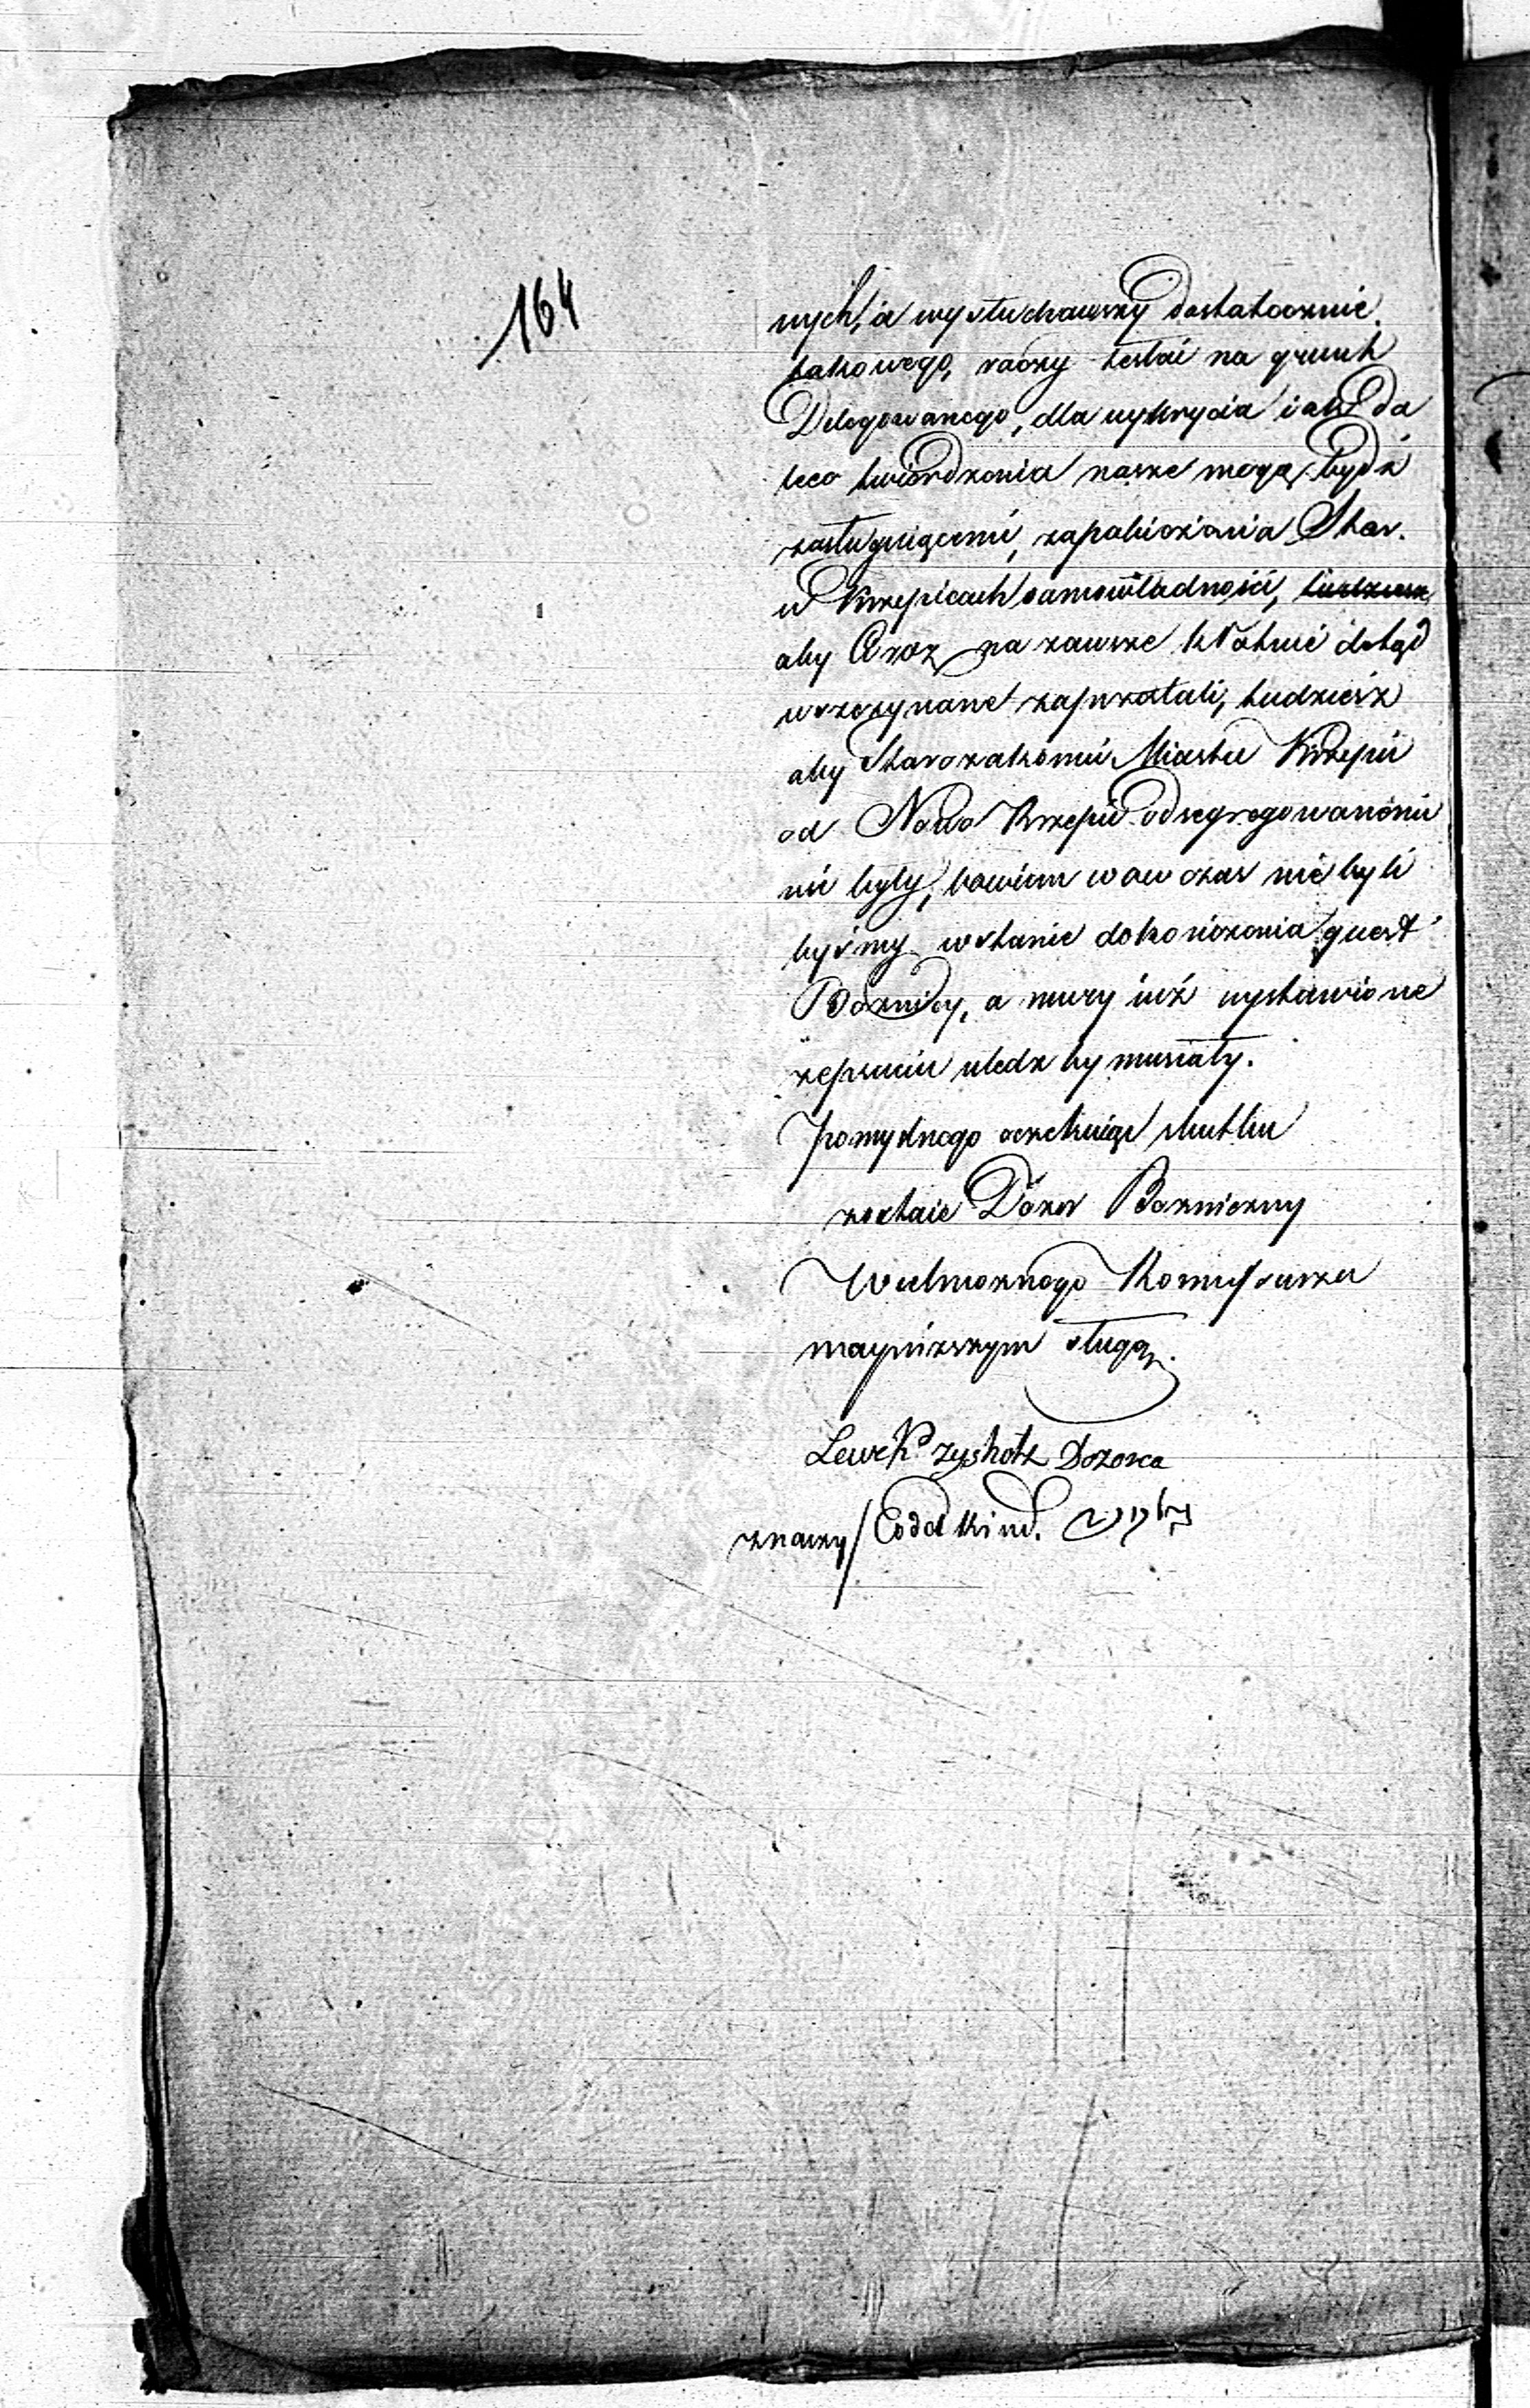 164
nych, a wysłuchawszy dostatecznie
takowego, raczy zesłać na grunt
Delegowanego, dla wykrycia iakł da
leco twierdzenia nasze mogą bydź
zasługuiącemi, zapobieżenia Star.
w Krzepicach samowładności,
aby Oraz na zawsze kłótnie dotąd
wszczynane zaprzestali, tudzież
aby Starozakonni Miasta Krzepic
od Nowo Krzepic odsegregowanemi
nie były, bowiem wow czas nie byli
byśmy wstanie dokończenia quest
Bożnicy, a mury iuż wystawione
zepsuciu uledz by musiały.
Pomyślnego oczekuiąc skutku
zostaie Dózór Bożniczny
Wielmożnego Kommissarza
nayniższym sługą.
Lewek Zyskotz Dozorca
znaczy / Eodel Kind.